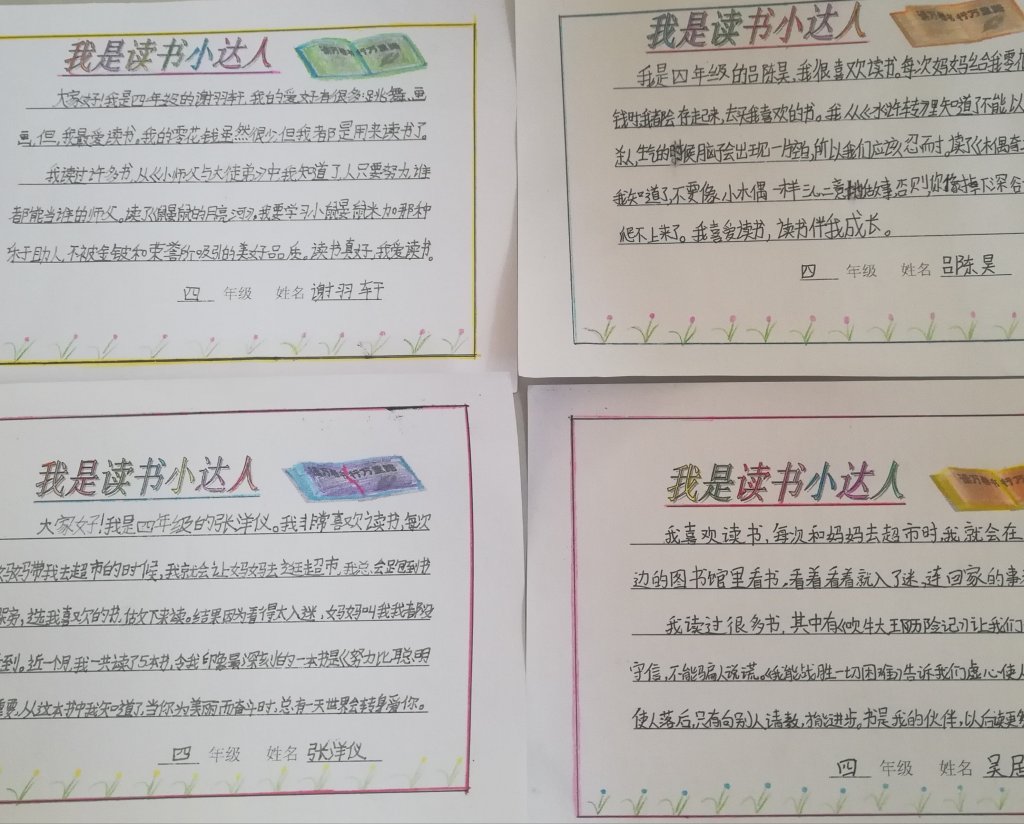 我是读书小达人
读万卷书 行万里路
大家好!我是四年级的谢羽轩,我的爱好有很多:跳舞、画
画,但,我最爱读书。我的零花钱虽然很少但我都是用来读书了。
我读过许多书,从《小师父与大徒弟》中我知道了人只要努力,谁
都能当谁的师父。读了《鼹鼠的月亮河》,我要学习小鼹鼠米加那种
乐于助人,不被金钱和荣誉所吸引的美好品质。读书真好,我爱读书。
四 年级 姓名 谢羽轩
我是读书小达人
行万里路
我是四年级的吕陈昊,我很喜欢读书。每次妈妈给我零花
钱时,我都会存起来,去买我喜欢的书。我从《水浒传》里知道了不能以
杀人,生气的时候脑子会出现一片空白,所以我们应该忍而寸。读了《木偶奇
我知道了不要像小木偶一样三心二意 故事否则你会掉下深谷
爬不上来了。我喜爱读书,读书伴我成长。
四 年级 姓名 吕陈昊
我是读书小达人
读万卷书 行万里路
大家好!我是四年级的张洋仪。我非常喜欢读书,每次
妈妈带我去超市的时候,我就会让妈妈去逛超市,我总会跑到书
架旁,选我喜欢的书,坐下来读。结果因为看得太入迷,妈妈叫我我都没
到。近一个月,我一共读了5本书,令我印象最深刻的一本书是《努力比聪明
重要》,从这本书中我知道了,当你为美丽而奋斗时,总有一天世界会转身爱你。
四 年级 姓名 张洋仪
我是读书小达人
读万卷书 行万
我喜欢读书,每次和妈妈去超市时,我就会在
边的图书馆里看书。看着看着就入了迷、连回家的事
我读过很多书,其中有《吹牛大王历险记》让我们
守信,不能骗人说谎。《我能战胜一切困难》告诉我们虚心使人
使人落后,只有向别人请教,才能进步。书是我的伙伴,以后读更
四 年级 姓名 吴